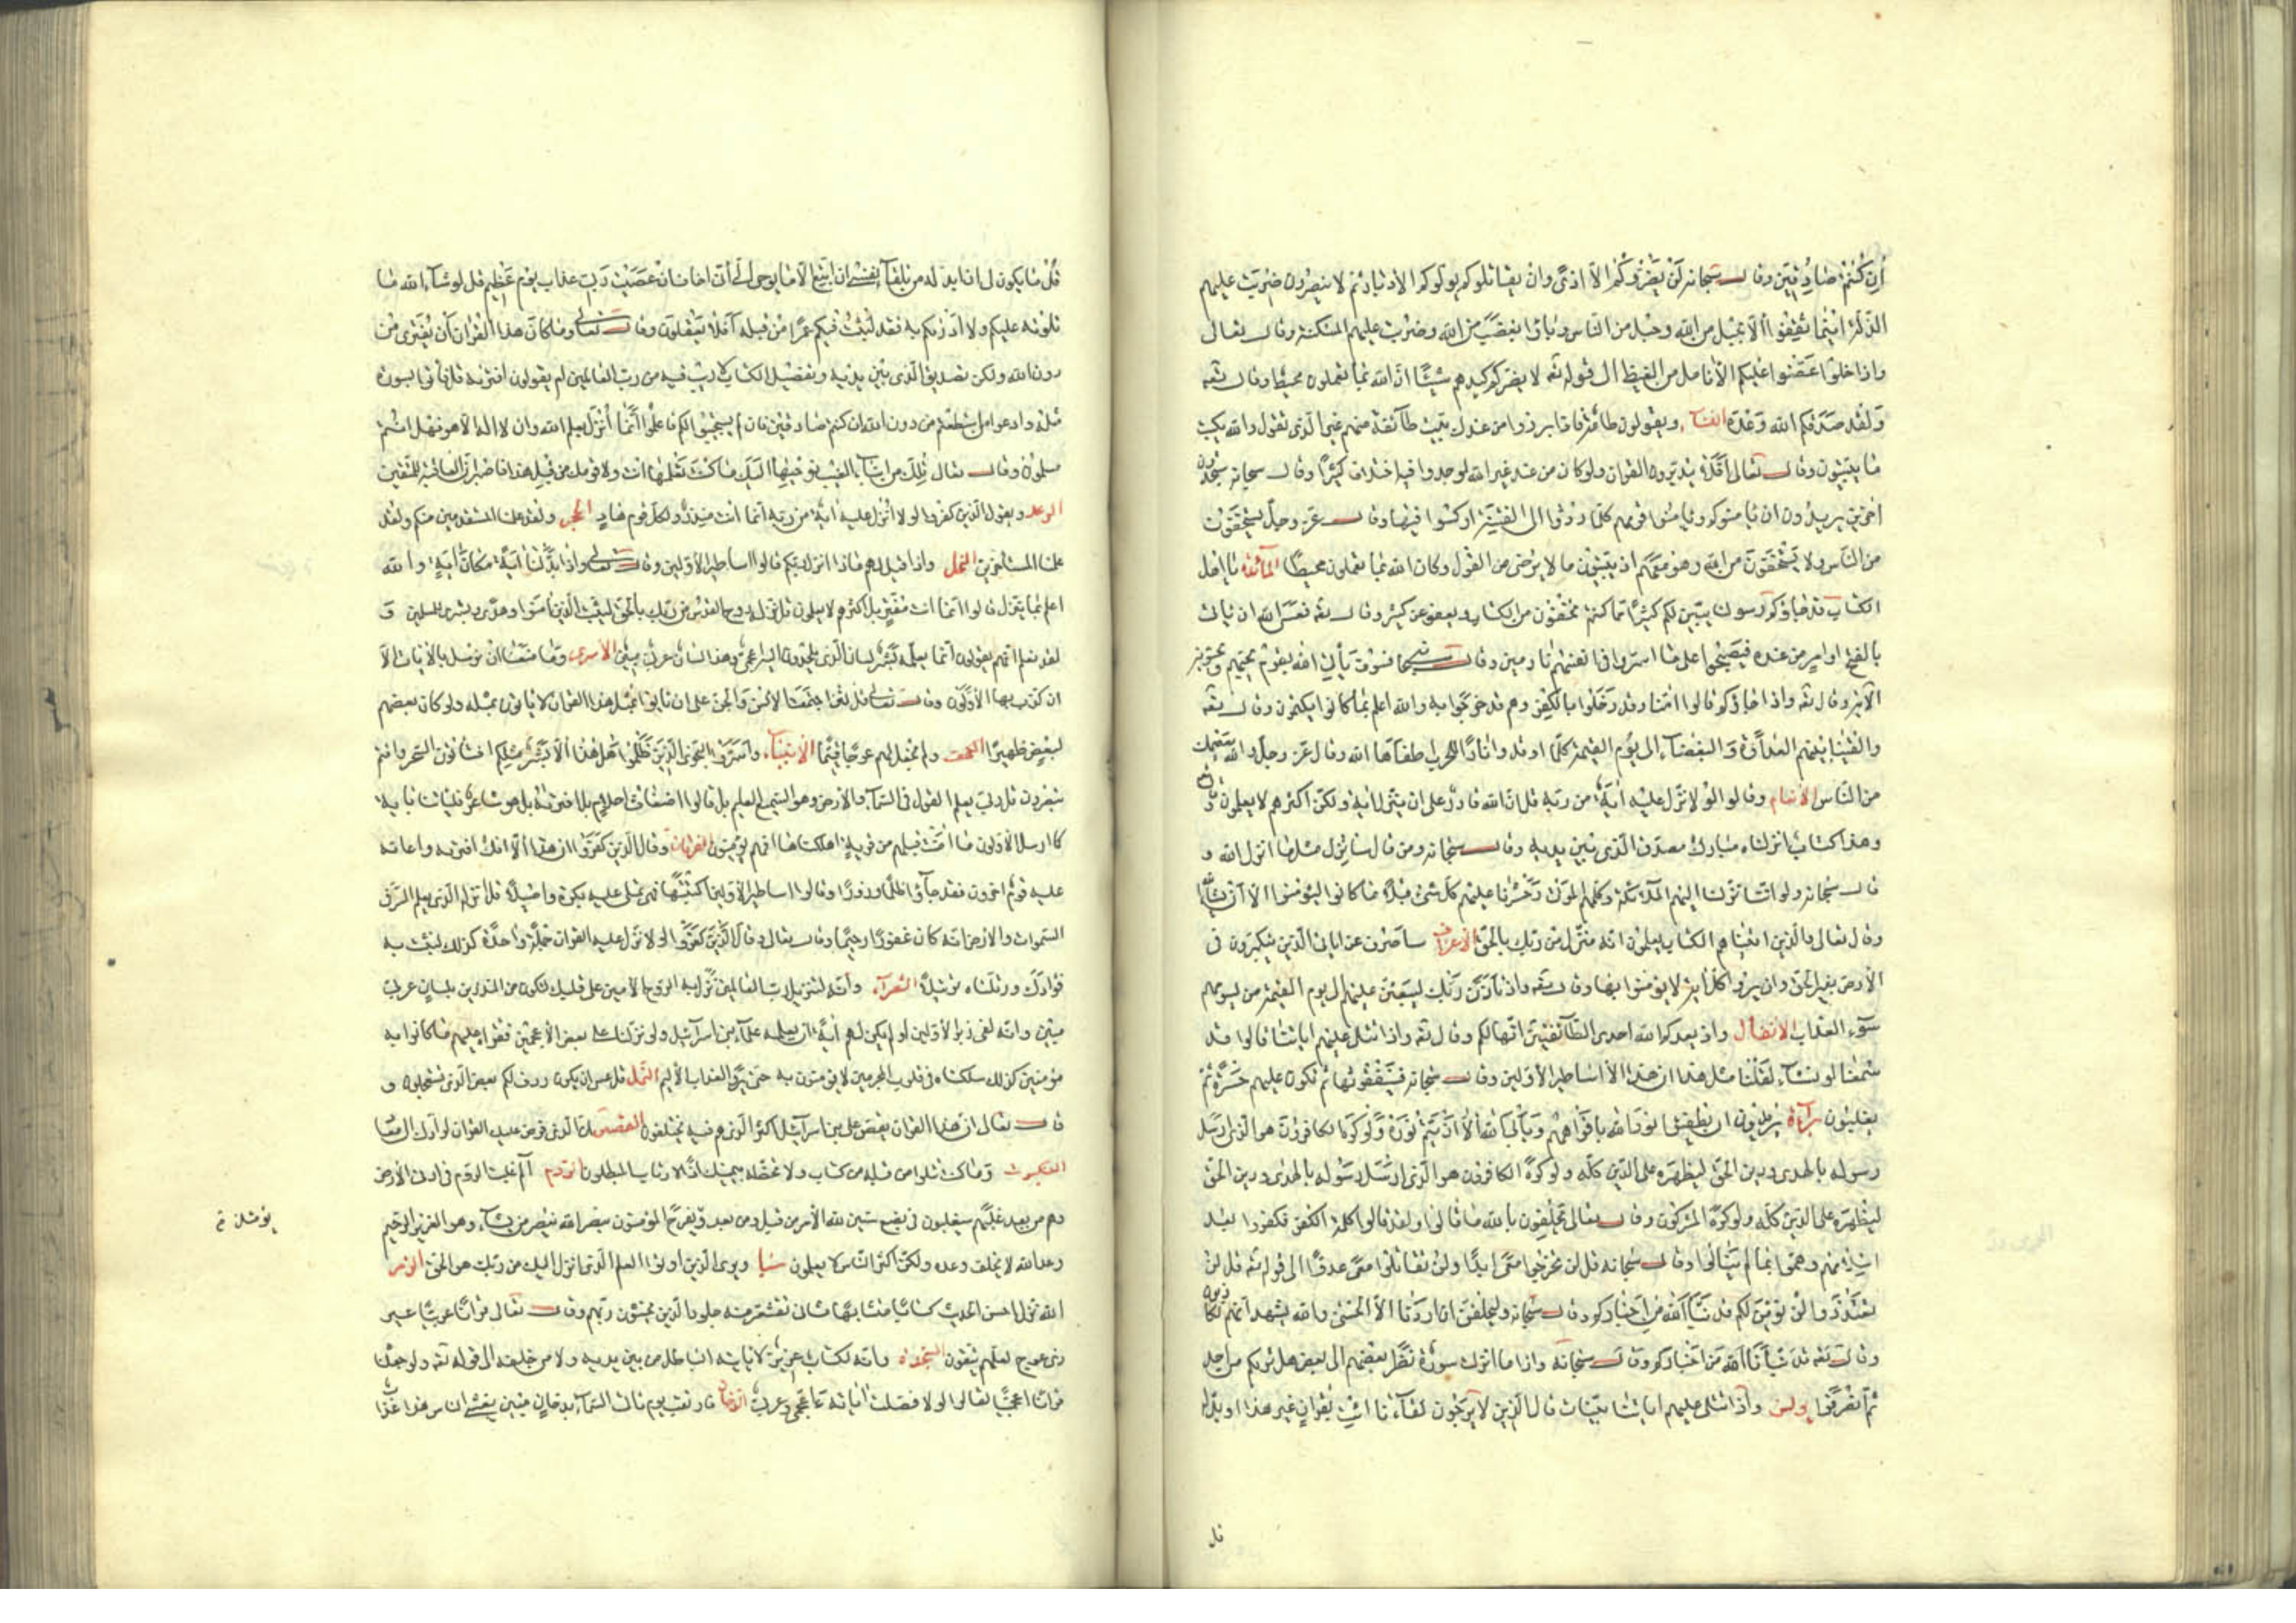 إن كنتم صادقين وقال سبحانه لن يضروكم إلا أذى وإن يقاتلوكم يولوكم الأدبار ثم لا ينصرون ضربت عليهم
الذلة أينما ثقفوا إلا بحبل من الله وحبل من الناس وباؤا بغضب من الله وضربت عليهم المسكنة وقال تعالى
وإذا خلوا عضوا عليكم الأنامل من الغيظ إلى قوله تع لا يضركم كيدهم شيئا إن الله بما يعملون محيط وقال تع
ولقد صدقكم الله وعده النساء ويقولون طاعة فإذا برزوا من عندك بيت طائفة منهم غير الذي تقول والله يكتب
ما يبيتون وقال تعالى أفلا يتدبرون القرآن ولو كان من عند غير الله لوجدوا فيه اختلافا كثيرا وقال سبحانه ستجدون
آخرين يريدون أن يأمنوكم ويأمنوا قومهم كلما ردوا إلى الفتنة أركسوا فيها وقال عز وجل يستخفون
من الناس ولا يستخفون من الله وهو معهم إذ يبيتون ما لا يرضى من القول وكان الله بما يعملون محيطا المائدة يا أهل
الكتاب قد جاءكم رسولنا يبين لكم كثيرا مما كنتم تخفون من الكتاب ويعفو عن كثير وقال تع فعسى الله أن يأتي
بالفتح أو أمر من عنده فيصبحوا على ما أسروا في أنفسهم نادمين وقال سبحانه فسوف يأتي الله بقوم يحبهم ويحبونه
الآية وقال تع وإذا جاؤكم قالوا آمنا وقد دخلوا بالكفر وهم قد خرجوا به والله أعلم بما كانوا يكتمون وقال تع
وألقينا بينهم العداوة والبغضاء إلى يوم القيمة كلما أوقدوا نارا للحرب أطفأها الله وقال عز وجل والله يعصمك
من الناس الأنعام وقالوا لولا نزل عليه آية من ربه قل إن الله قادر على أن ينزل آية ولكن أكثرهم لا يعلمون وقال
وهذا كتاب أنزلناه مبارك مصدق الذي بين يديه وقال سبحانه ومن قال سأنزل مثل ما أنزل الله و
قال سبحانه ولو أننا نزلنا إليهم الملائكة وكلمهم الموتى وحشرنا عليهم كل شيء قبلا ما كانوا ليؤمنوا إلا أن يشاء الله
وقال تعالى والذين آتيناهم الكتاب يعلمون أنه منزل من ربك بالحق الأعراف سأصرف عن آياتي الذين يتكبرون في
الأرض بغير الحق وإن يروا كل آية لا يؤمنوا بها وقال تع وإذ تأذن ربك ليبعثن عليهم إلى يوم القيمة من يسومهم
سوء العذاب الأنفال وإذ يعدكم الله إحدى الطائفتين أنها لكم وقال تع وإذا تتلى عليهم آياتنا قالوا قد
سمعنا لو نشاء لقلنا مثل هذا إن هذا إلا أساطير الأولين وقال سبحانه فسينفقونها ثم تكون عليهم حسرة ثم
يغلبون براءة يريدون أن يطفئوا نور الله بأفواههم ويأبى الله إلا أن يتم نوره ولو كره الكافرون هو الذي أرسل
رسوله بالهدى ودين الحق ليظهره على الدين كله ولو كره الكافرون هو الذي أرسل رسوله بالهدى ودين الحق
ليظهره على الدين كله ولو كره المشركون وقال تعالى يحلفون بالله ما قالوا ولقد قالوا كلمة الكفر وكفروا بعد
إسلامهم وهموا بما لم ينالوا وقال سبحانه قل لن تخرجوا معي أبدا ولن تقاتلوا معي عدوا إلى قوله تع قل لن
تعتذروا لن نؤمن لكم قد نبأنا الله من أخباركم وقال سبحانه وليحلفن إن أردنا إلا الحسنى والله يشهد إنهم لكاذبون
وقال تع قد نبأنا الله من أخباركم وقال سبحانه وإذا ما أنزلت سورة نظر بعضهم إلى بعض هل يريكم من أحد
ثم انصرفوا يونس وإذا تتلى عليهم آياتنا بينات قال الذين لا يرجون لقاءنا ائت بقرآن غير هذا أو بدله
قل
قل ما يكون لي أن أبدله من تلقاء نفسي إن أتبع إلا ما يوحى إلي إني أخاف إن عصيت ربي عذاب يوم عظيم قل لو شاء الله ما
تلوته عليكم ولا أدريكم به فقد لبثت فيكم عمرا من قبله أفلا تعقلون وقال تعالى وما كان هذا القرآن أن يفترى من
دون الله ولكن تصديق الذي بين يديه وتفصيل الكتاب لا ريب فيه من رب العالمين أم يقولون افتريه قل فأتوا بسورة
مثله وادعوا من استطعتم من دون الله إن كنتم صادقين فإن لم يستجيبوا لكم فاعلموا أنما أنزل بعلم الله وأن لا إله إلا هو فهل أنتم
مسلمون وقال تعالى تلك من أنباء الغيب نوحيها إليك ما كنت تعلمها أنت ولا قومك من قبل هذا فاصبر إن العاقبة للمتقين
الرعد ويقول الذين كفروا لولا أنزل عليه آية من ربه إنما أنت منذر ولكل قوم هاد الحجر ولقد علمنا المستقدمين منكم ولقد
علمنا المستأخرين النحل وإذا قيل لهم ماذا أنزل ربكم قالوا أساطير الأولين وقال تعالى وإذا بدلنا آية مكان آية والله
أعلم بما ينزل قالوا إنما أنت مفتر بل أكثرهم لا يعلمون قل نزله روح القدس من ربك بالحق ليثبت الذين آمنوا وهدى وبشرى للمسلمين و
لقد نعلم أنهم يقولون إنما يعلمه بشر لسان الذي يلحدون إليه أعجمي وهذا لسان عربي مبين الأسرى وما منعنا أن نرسل بالآيات إلا
أن كذب بها الأولون وقال تعالى قل لئن اجتمعت الإنس والجن على أن يأتوا بمثل هذا القرآن لا يأتون بمثله ولو كان بعضهم
لبعض ظهيرا الكهف ولم يجعل لهم عوجا قيما الأنبياء وأسروا النجوى الذين ظلموا هل هذا إلا بشر مثلكم أفتأتون السحر وأنتم
تبصرون قل ربي يعلم القول في السماء والأرض وهو السميع العليم بل قالوا أضغاث أحلام بل افتريه بل هو شاعر فليأتنا بآية
كما أرسل الأولون ما آمنت قبلهم من قرية أهلكناها أفهم يؤمنون الفرقان وقال الذين كفروا إن هذا إلا إفك افتريه وأعانه
عليه قوم آخرون فقد جاؤا ظلما وزورا وقالوا أساطير الأولين اكتتبها فهي تملى عليه بكرة وأصيلا قل أنزله الذي يعلم السر في
السموات والأرض إنه كان غفورا رحيما وقال تعالى وقال الذين كفروا لولا نزل عليه القرآن جملة واحدة كذلك لنثبت به
فؤادك ورتلناه ترتيلا الشعراء وإنه لتنزيل رب العالمين نزل به الروح الأمين على قلبك لتكون من المنذرين بلسان عربي
مبين وإنه لفي زبر الأولين أولم يكن لهم آية أن يعلمه علماء بني إسرائيل ولو نزلناه على بعض الأعجمين فقرأه عليهم ما كانوا به
مؤمنين كذلك سلكناه في قلوب المجرمين لا يؤمنون به حتى يروا العذاب الأليم النمل قل عسى أن يكون ردف لكم بعض الذي تستعجلون و
قال تعالى إن هذا القرآن يقص على بني إسرائيل أكثر الذي هم فيه يختلفون القصص إن الذي فرض عليك القرآن لرادك إلى معاد
العنكبوت وما كنت تتلوا من قبله من كتاب ولا تخطه بيمينك إذا لارتاب المبطلون الروم الم غلبت الروم في أدنى الأرض
وهم من بعد غلبهم سيغلبون في بضع سنين لله الأمر من قبل ومن بعد ويفرح المؤمنون بنصر الله ينصر من يشاء وهو العزيز الرحيم
وعد الله لا يخلف وعده ولكن أكثر الناس لا يعلمون سبا ويرى الذين أوتوا العلم الذي أنزل إليك من ربك هو الحق الزمر
الله نزل أحسن الحديث كتابا متشابها مثاني تقشعر منه جلود الذين يخشون ربهم وقال تعالى قرآنا عربيا غير
ذي عوج لعلهم يتقون السجدة وإنه لكتاب عزيز لا يأتيه الباطل من بين يديه ولا من خلفه إلى قوله تع ولو جعلناه
قرآنا أعجميا لقالوا لولا فصلت آياته ءاعجمي وعربي الدخان فارتقب يوم تأتي السماء بدخان مبين يغشى الناس هذا عذاب
يومئذ